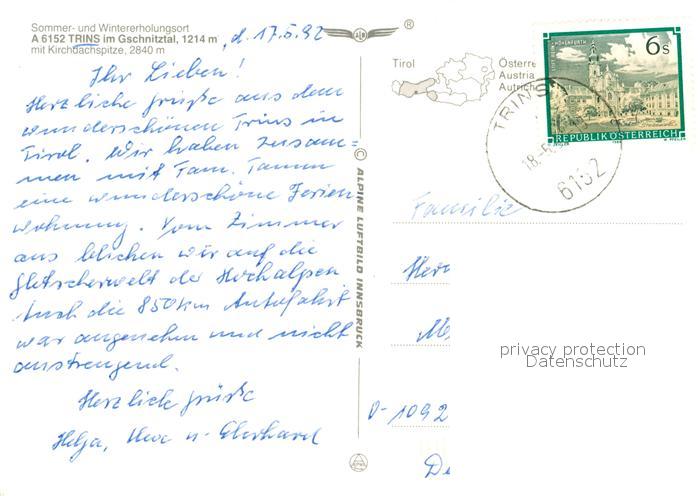 Sommer- und Wintererholungsort
A 6152 TRINS im Gschnitztal, 1214 m
mit Kirchdachspitze, 2840 m
d. 17.5.92
Ihr Lieben!
Herzliche Grüße aus dem
wunderschönen Trins in
Tirol. Wir haben zusam=
men mit Fam.
eine wunderschöne Ferien
wohnung. Vom Zimmer
aus blicken wir auf die
Gletscherwelt der Hochalpen
Auch die 850 km Autofahrt
war angenehm und nicht
anstrengend.
Herzliche Grüße
Helga, Uwe u. Eberhard
© ALPINE LUFTBILD INNSBRUCK
®
Tirol
Österre
Austria
Autrich
TRINS
18.-5
6152
STIFT REIN-HOHENFURTH
6 s
REPUBLIK ÖSTERREICH
Familie
Her
D-1092
De
privacy protection
Datenschutz